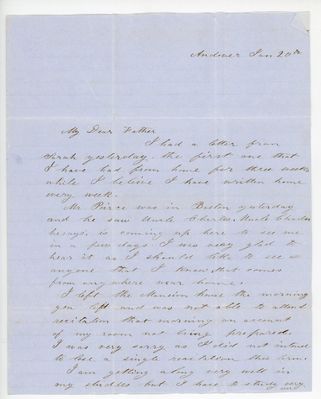 Andover Jan 20th
My Dear Father
I had a letter from
Sarah yesterday, the first one that
I have had from home for three weeks
while I believe I have written home
every week.
Mr Peirce was in Boston yesterday
and he saw Uncle Charles. Uncle Charles
he says, is coming up here to see me
in a few days I was very glad to
hear it as I should like to see
anyone that I know that comes
from any where near home.
I left the Mansion house the morning
you left and was not able to attend
recitation that morning on account
of my room not being prepared.
I was very sorry as I did not intend
to lose a single recitation this term.
I am getting along very well in
my studies but I have to study very